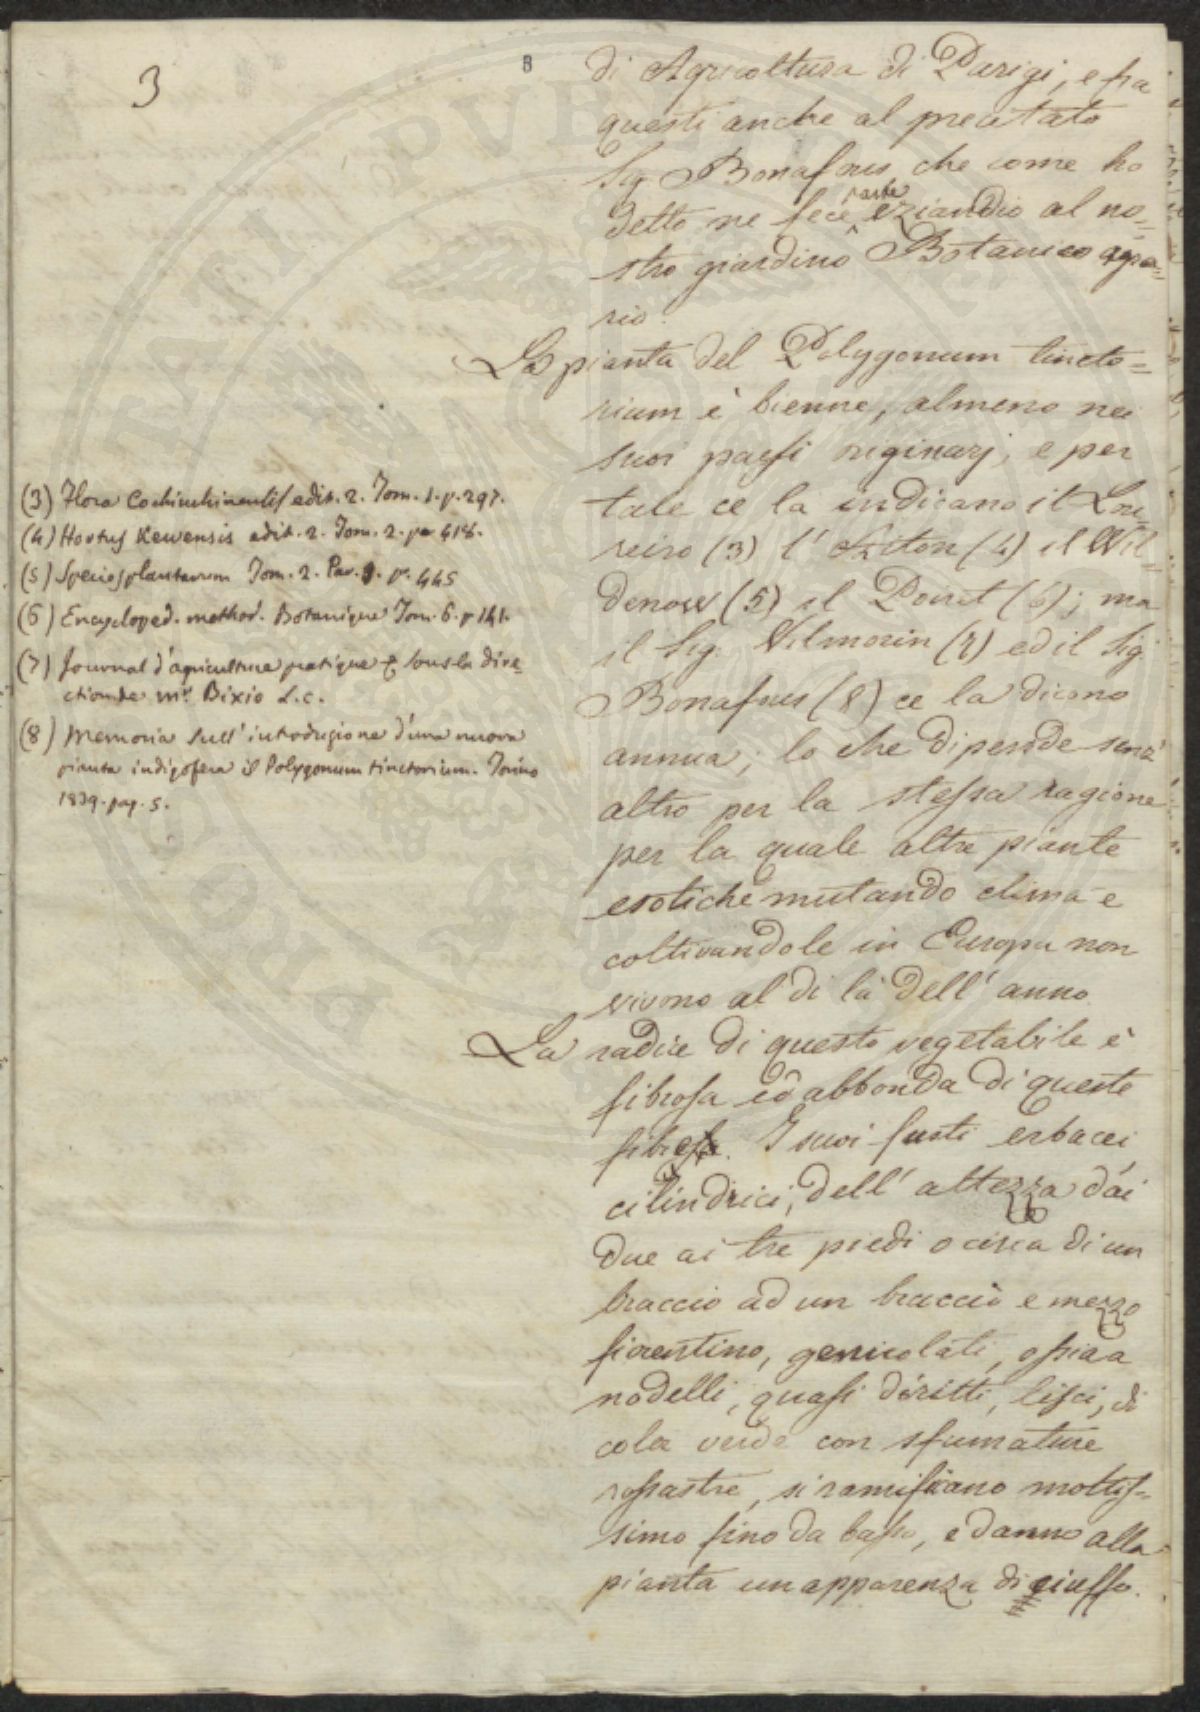 3
8
di Agricoltura di Parigi, e fra
questi anche al precitato
Sig. Bonafous che come ho
detto ne fece parte eziandio al no=
stro giardino Botanico agra=
rio.
La pianta del Polygonum tincto=
rium è bienne, almeno nei
suoi paesi originarj, e per
tale ce la indicano il Lou
reiro (3) l' Aiton (4) il Wil=
denow (5) il Poiret (6); ma
il Sig. Vilmorin (7) ed il Sig.
Bonafous (8) ce la dicono
annua; lo che dipende senz'
altro per la stessa ragione
per la quale altre piante
esotiche mutando clima e
coltivandole in Europa non
vivono al di là dell' anno.
La radice di questo vegetabile è
fibrosa ed abbonda di queste
fibre. I suoi fusti erbacei
cilindrici, dell' altezza dai
due ai tre piedi o circa di un
braccio ad un braccio e mezzo
fiorentino, genicolati, ossia a
nodelli, quasi diritti, lisci, di
color verde con sfumature
rossastre, si ramificano moltis=
simo fino da basso, e danno alla
pianta un apparenza di ciuffo.
(3) Flora Cochinchinensis edit. 2. Tom. 1. p. 297.
(4) Hortus Kewensis edit. 2. Tom. 2. p. 418.
(5) Species plantarum Tom. 2. Par. 1. p. 445
(6) Encycloped. method. Botanique Tom. 6. p 141.
(7) Journal d'agriculture pratique & sous la dire=
ction de Mr. Bixio L.c.
(8) Memoria sull' introduzione d'una nuova
pianta indigofera il Polygonum tinctorium. Torino
1839. pag. 5.